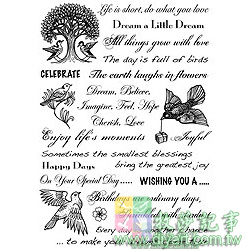 Life is short, do what you love
Dream a Little Dream
All things grow with love
The day is full of birds
CELEBRATE
The earth laughs in flowers
Dream, Believe,
Imagine, Feel, Hope
Cherish, Love
Enjoy life's moments
Joyful
Sometimes the smallest blessings
bring the greatest joy
Happy Days
On Your Special Day.....
WISHING YOU A .....
Birthdays ordinary days,
with
Every day another chance
... to make you
www.drama.com.tw